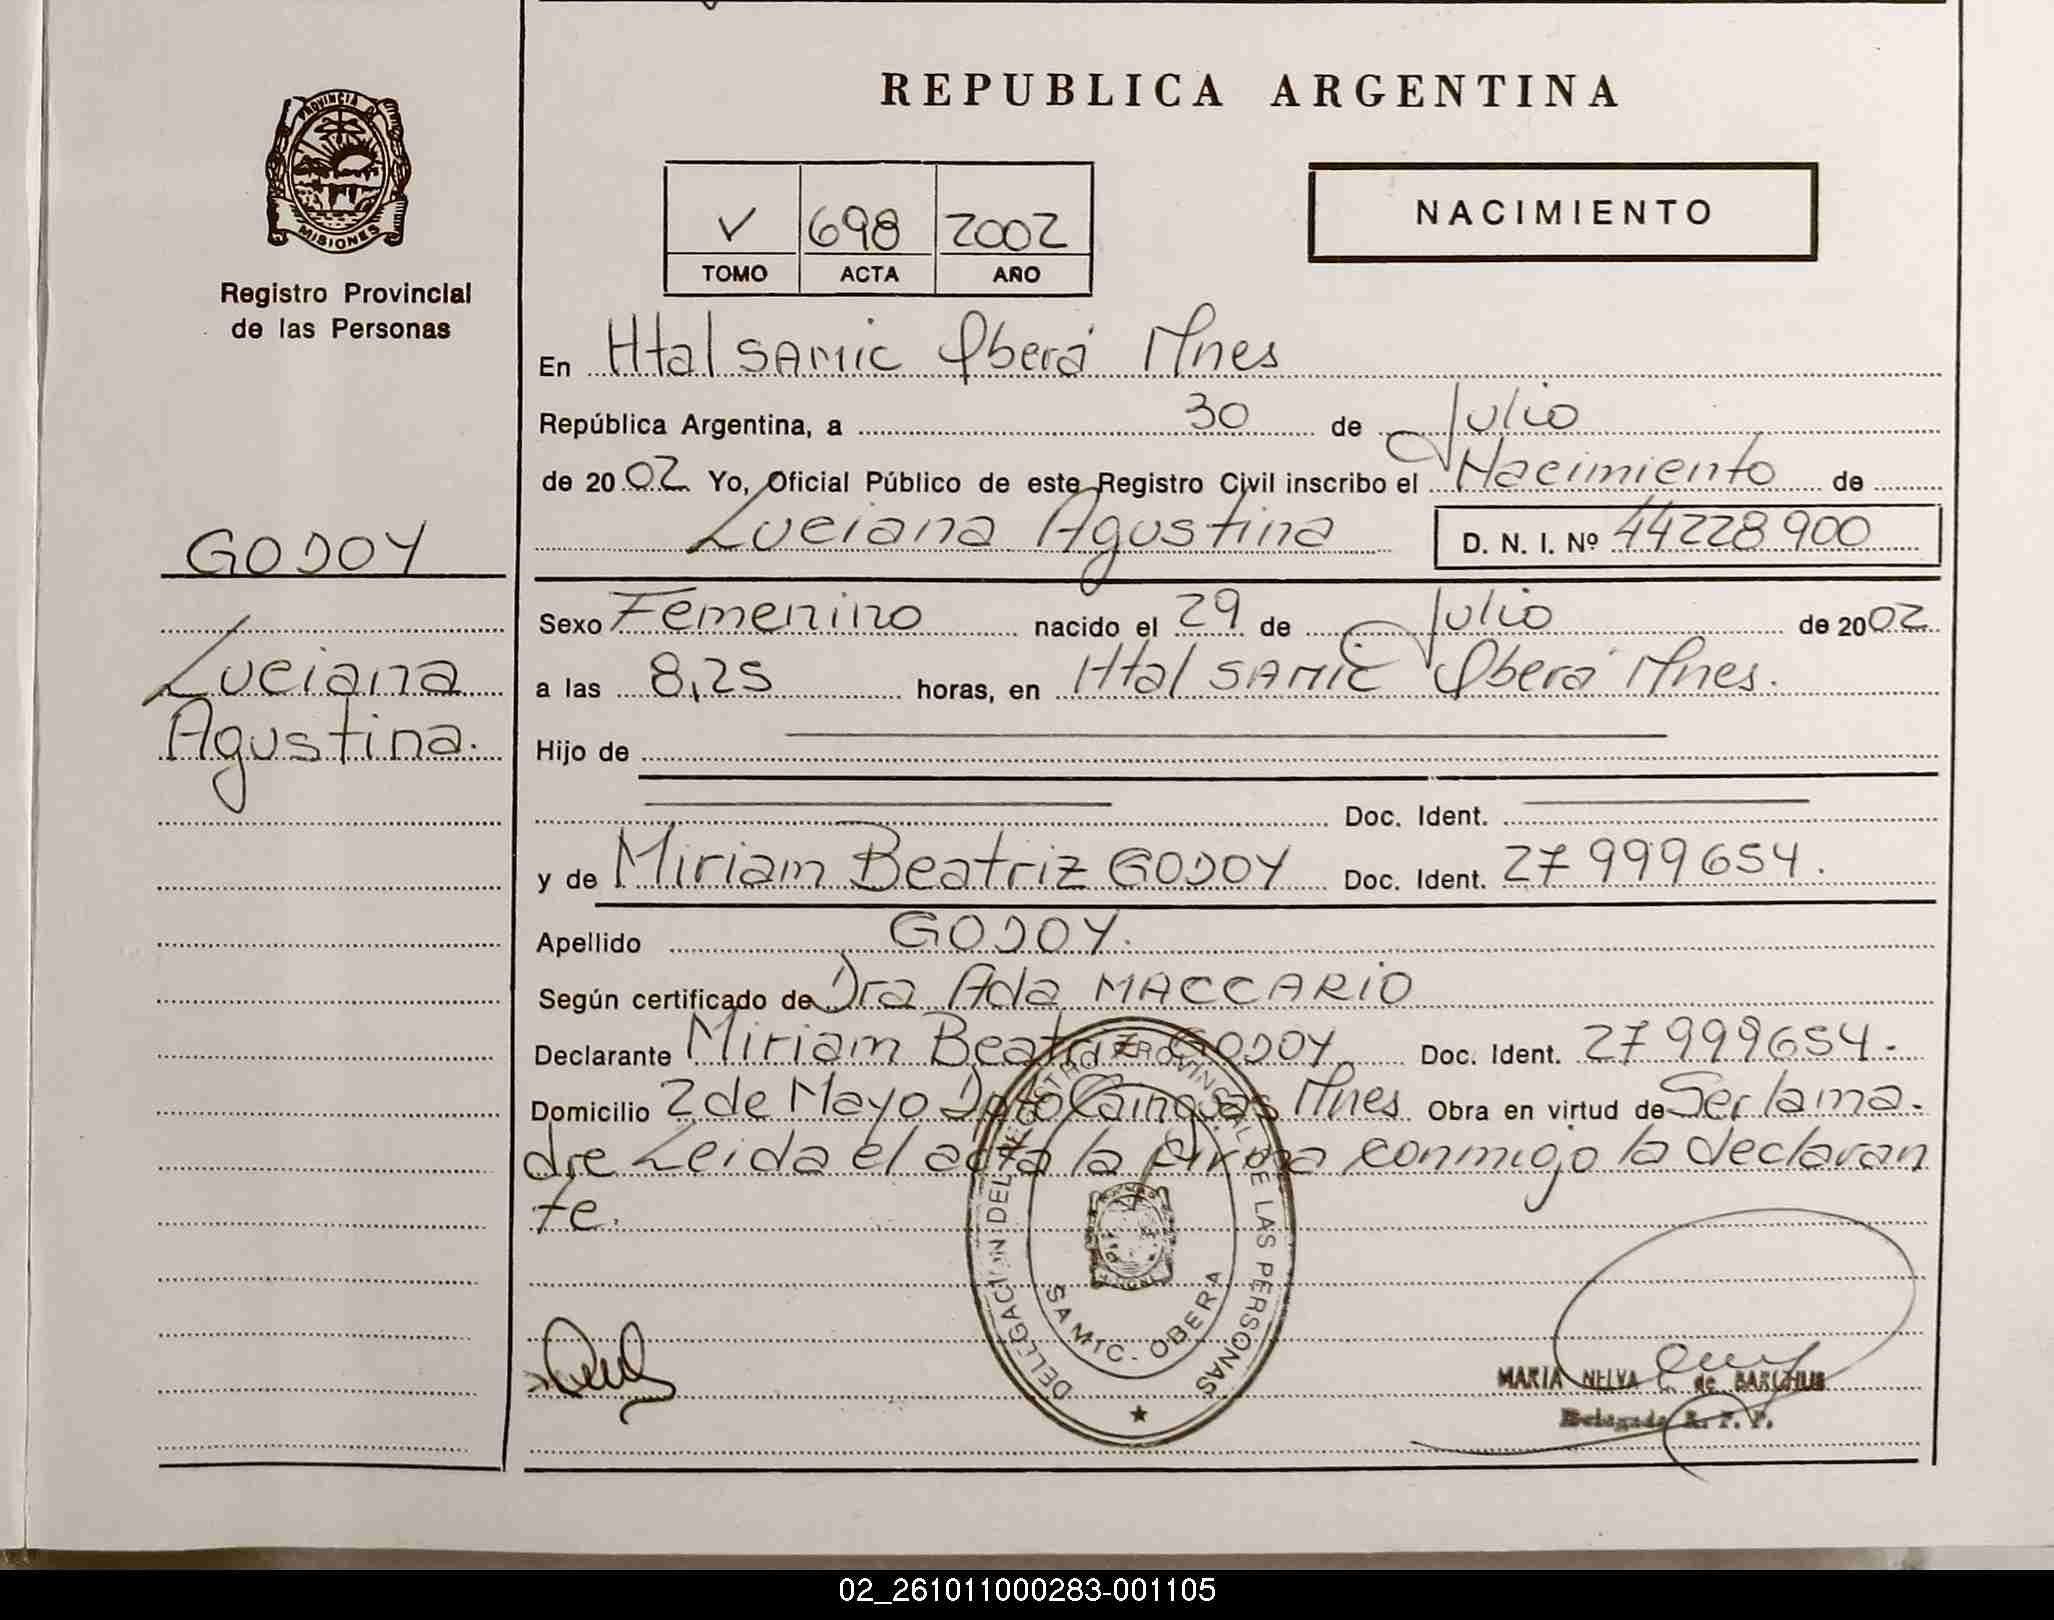 REPUBLICA ARGENTINA
PROVINCIA D MISIONES
Registro Provincial
de las Personas
V 698 2002
TOMO ACTA AÑO
NACIMIENTO
En Htal SAMIC Oberá Mnes
República Argentina, a 30 de Julio
de 2002 Yo, Oficial Público de este Registro Civil inscribo el Nacimiento de
Luciana Agustina D. N. I. Nº 44228900
GODOY
Luciana
Agustina.
Sexo Femenino nacido el 29 de Julio de 2002
a las 8,25 horas, en Htal SAMIC Oberá Mnes.
Hijo de
Doc. Ident.
y de Miriam Beatriz GODOY Doc. Ident. 27999654.
Apellido GODOY.
Según certificado de Dra Ada MACCARIO
Declarante Miriam Beatriz GODOY Doc. Ident. 27999654.
Domicilio 2 de Mayo Dpto Cainguas Mnes Obra en virtud de Ser la ma-
dre Leida el acta la firma conmigo la declaran
te.
DELEGACION DEL REGISTRO PROVINCIAL DE LAS PERSONAS
SAMIC - OBERA
MARIA NELVA C. de BARCHUS
Delegada R. P. P.
02_261011000283-001105